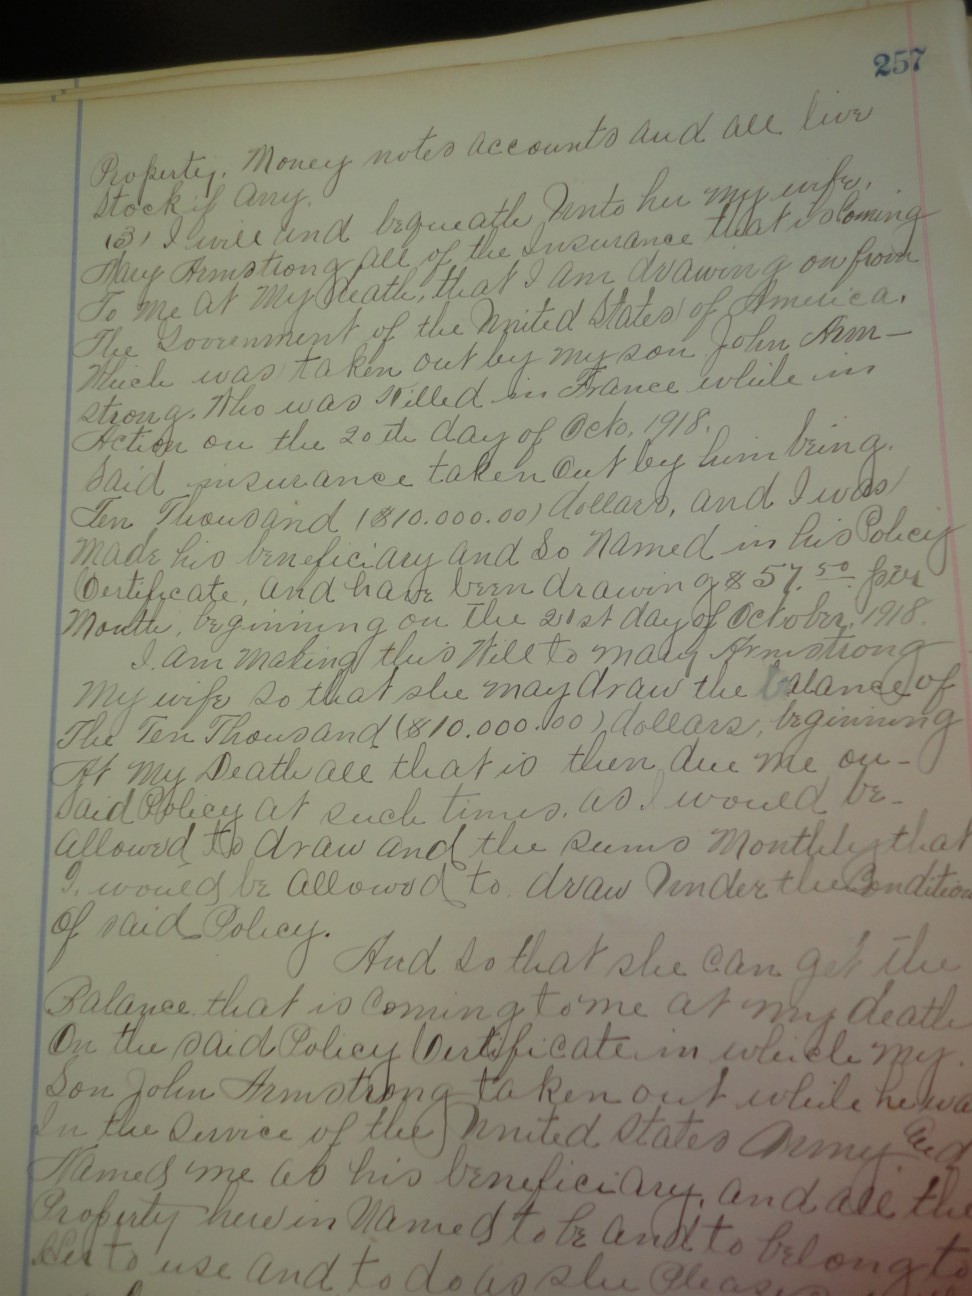 257
Property. Money notes accounts and all live
Stock if Any.
(3) I will and bequeath Unto her my wife,
Mary Armstrong all of the Insurance that is Coming
To me at My Death, that I am drawing on from
The Government of the United States of America.
Which was taken out by my son John Arm-
strong. Who was killed in France while in
Action on the 20th day of Octo, 1918.
Said insurance taken Out by him being.
Ten Thousand ($10.000.00) dollars, and I was
Made his beneficiary and So Named in his Policy
Certificate, and have been drawing $57.50 per
Month, beginning on The 21st day of October, 1918.
I am Making this Will to mary Armstrong
My wife so that she may draw the balance of
The Ten Thousand ($10.000.00) dollars, beginning
At My Death all that is then due me on-
Said Policy at such times, as I would be-
Allowed to draw and the sums Monthly that
I, would be Allowed to draw Under the Condition
Of said Policy.
And so that she can get The
Balance that is Coming to me at my death
On the said Policy Certificate in which My
Son John Armstrong taken out while he wa
In the Service of the United States Army And
Named me as his beneficiary, and all the
Property herein Named to be and to belong to
Her to use and to do as she Please